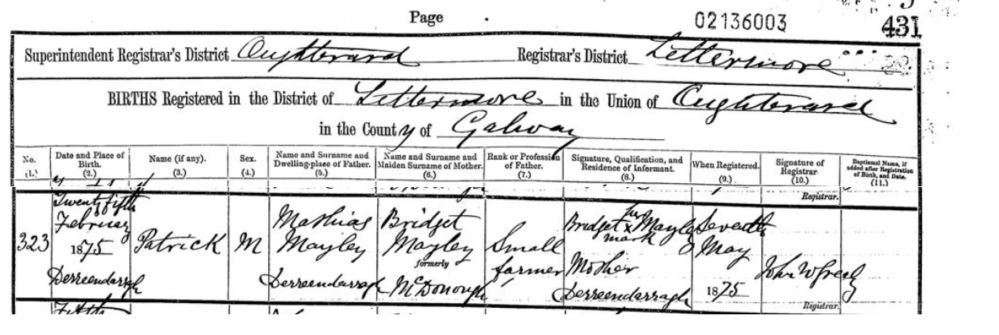 Page 02136003 431
Superintendent Registrar's District Oughterard Registrar's District Lettermore
BIRTHS Registered in the District of Lettermore in the Union of Oughterard
in the County of Galway
No. (1.) Date and Place of Birth. (2.) Name (if any). (3.) Sex. (4.) Name and Surname and Dwelling-place of Father. (5.) Name and Surname and Maiden Surname of Mother. (6.) Rank or Profession of Father. (7.) Signature, Qualification, and Residence of Informant. (8.) When Registered. (9.) Signature of Registrar. (10.) Baptismal Name, if added after Registration of Birth, and Date. (11.)
Registrar.
323 Twenty fifth February 1875 Derreendarragh Patrick M Mathias Mayley Derreendarragh Bridget Mayley formerly McDonough Small farmer Bridget her x mark Mayley Mother Derreendarragh Seventh May 1875 John W
Registrar.